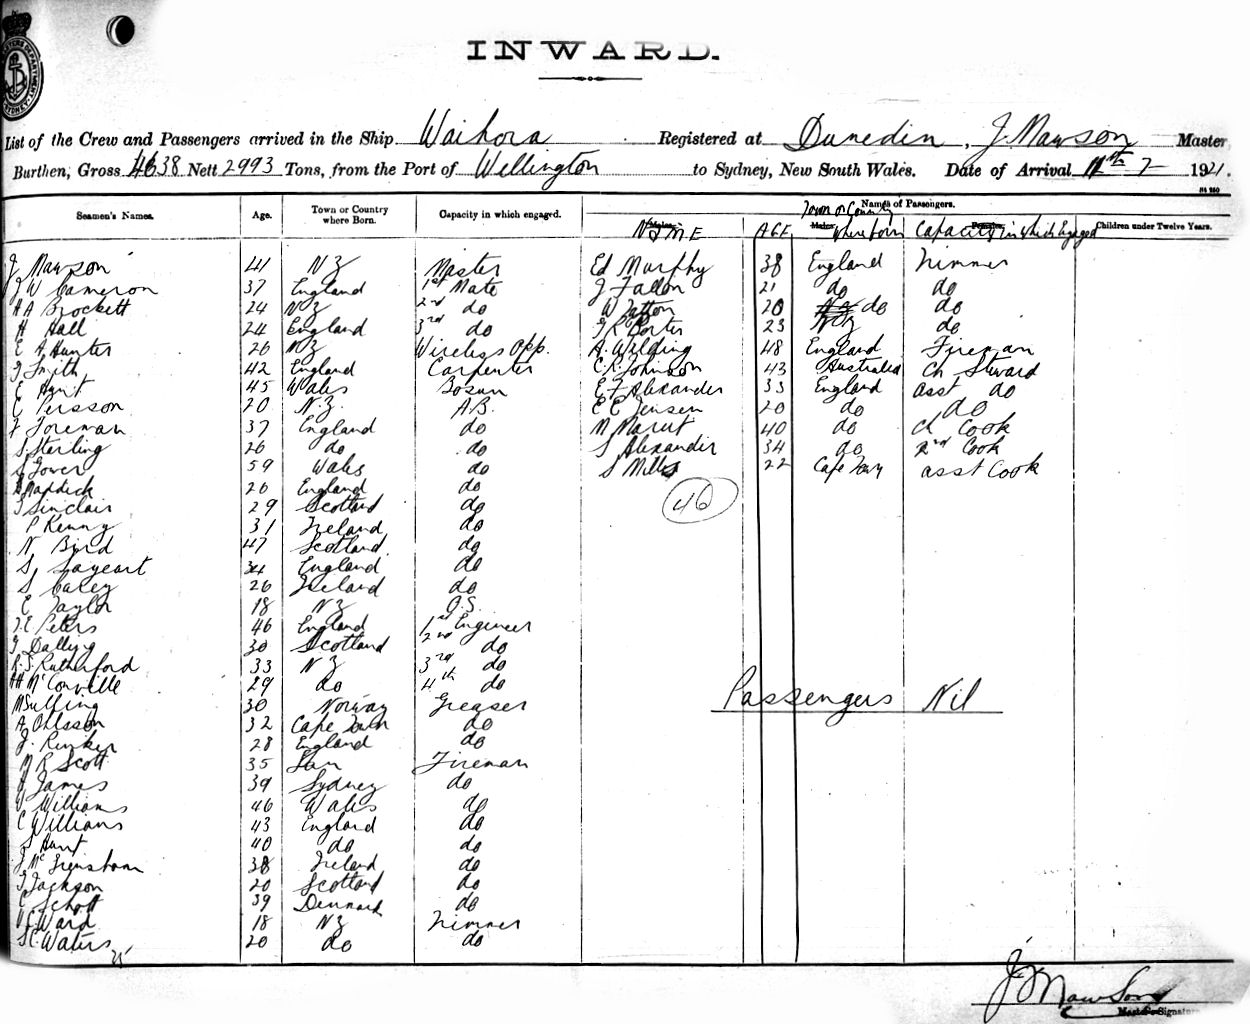 INWARD.
List of the Crew and Passengers arrived in the Ship Waihora Registered at Dunedin, J. Mawson Master
Burthen, Gross 4638 Nett 2993 Tons, from the Port of Wellington to Sydney, New South Wales. Date of Arrival 7 1921.
Seamen's Names. Age. Town or Country where Born. Capacity in which engaged. Names of Passengers.
NAME AGE Town or Country where born Capacity in which Engaged Children under Twelve Years.
J Mawson 41 NZ Master Ed Murphy 38 England Trimmer
J W Cameron 37 England 1st Mate J Fallon 21 do do
H A Brockett 24 NZ 2nd do W 20 do do
H Hall 24 England 3rd do Porter 23 NZ do
E A Hunter 26 NZ Wireless Opp. A. Wilding 48 England Fireman
J Smith 42 England Carpenter C. R. Johnson 43 Australia Ch Steward
E Hunt 45 Wales Bosun E F Alexander 33 England asst do
E Persson 20 N.Z. A.B. E E Jensen 20 do do
F Foreman 37 England do M Marut 40 do Ch Cook
S Sterling 26 do do S Alexander 34 do 2nd Cook
S Gover 59 Wales do S Mills 22 Cape Town asst Cook
Maddick 26 England do
46
J Sinclair 29 Scotland do
P Kenny 31 Ireland do
N Bird 47 Scotland do
S. Sageart 34 England do
S Carey 26 Ireland do
E Taylor 18 NZ O.S.
J. E Peters 46 England 1st Engineer
J Dalling 30 Scotland 2nd do
R. S. Rutherford 33 NZ 3rd do
McConville 29 do 4th do
Passengers Nil
30 Norway Greaser
A. Ohlsson 32 Cape Town do
J. 28 England do
R Scott 35 Fireman
James 39 Sydney do
Williams 46 Wales do
C Williams 43 England do
S Hunt 40 do do
J Mc 38 Ireland do
J Jackson 20 Scotland do
C Schott 39 Denmark do
Ward 18 NZ Trimmer
S C Waters 20 do do
J Mawson
Master's Signature